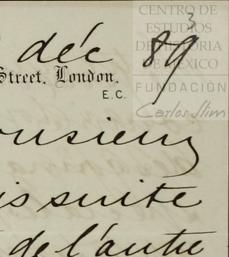 CENTRO DE
ESTUDIOS
DE HISTORIA
DE MÉXICO
FUNDACIÓN
Carlos Slim
3
déc 89
Street, London,
E.C.
onsieur
is suite
de l'autre